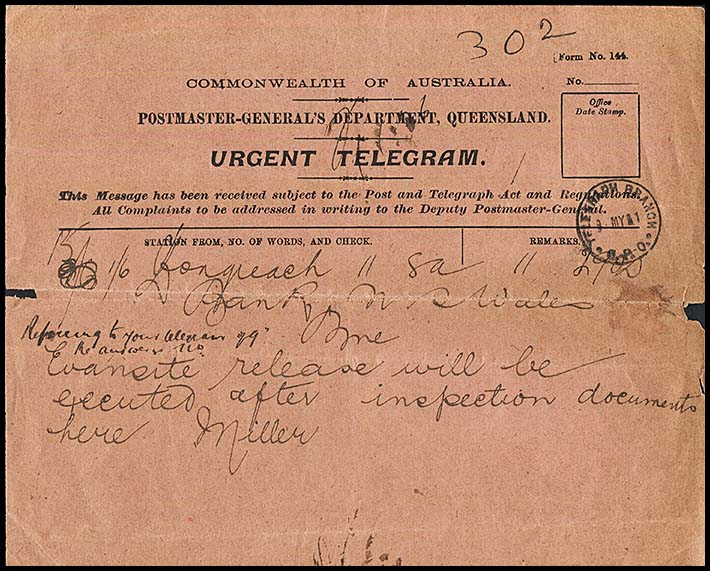 302
(Form No. 144.
COMMONWEALTH OF AUSTRALIA.
No.
POSTMASTER-GENERAL'S DEPARTMENT, QUEENSLAND.
Office
Date Stamp.
URGENT TELEGRAM.
This Message has been received subject to the Post and Telegraph Act and Regulations.
All Complaints to be addressed in writing to the Deputy Postmaster-General.
TELEGRAPH BRANCH
G.P.O.
STATION FROM, NO. OF WORDS, AND CHECK.
REMARKS.
1/6 Longreach 11 9a 11
Bank N S Wales
Referring to your telegram
Bne
Re answers No
Evansite release will be
executed after inspection documents
here Miller